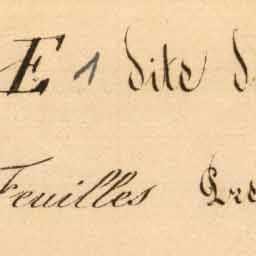 E 1 dite
Feuilles